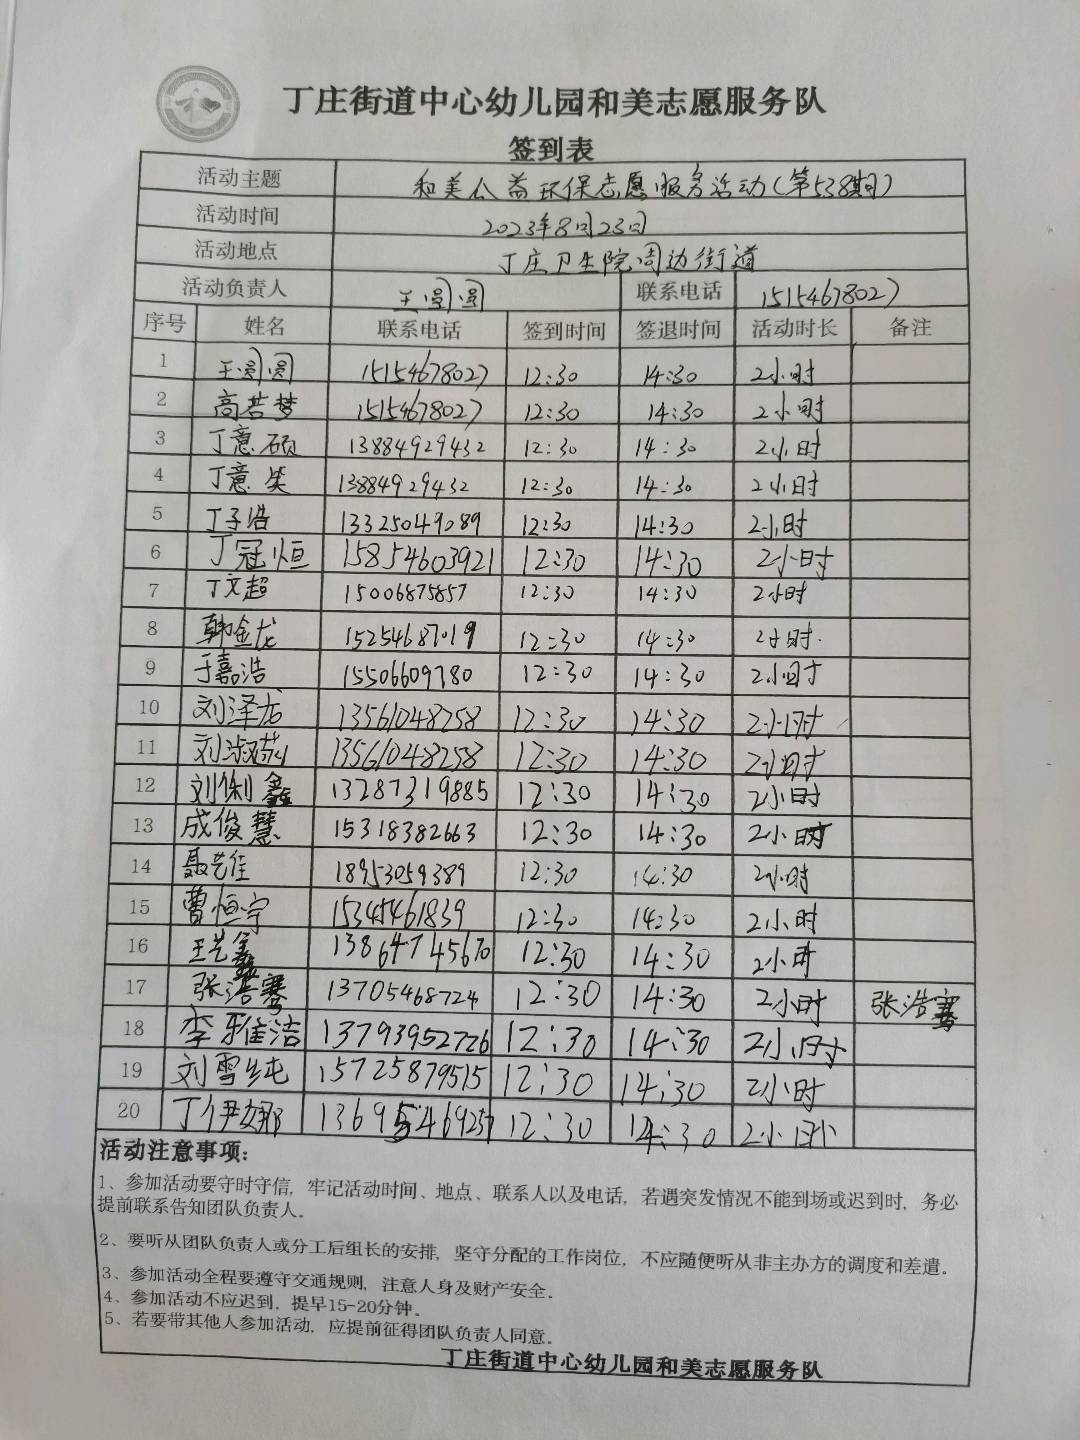 丁庄街道中心幼儿园和美志愿服务队
签到表
活动主题 和美公益环保志愿服务活动(第538期)
活动时间 2023年8月23日
活动地点 丁庄卫生院周边街道
活动负责人 王圆圆 联系电话 15154678027
序号 姓名 联系电话 签到时间 签退时间 活动时长 备注
1 王圆圆 15154678027 12:30 14:30 2小时
2 高若梦 15154678027 12:30 14:30 2小时
3 丁意硕 13884929432 12:30 14:30 2小时
4 丁意笑 13884929432 12:30 14:30 2小时
5 丁子浩 13325049089 12:30 14:30 2小时
6 丁冠恒 15854603921 12:30 14:30 2小时
7 丁文超 15006875857 12:30 14:30 2小时
8 韩金龙 15254687019 12:30 14:30 2小时
9 于嘉浩 15506609780 12:30 14:30 2小时
10 刘泽龙 13561048258 12:30 14:30 2小时
11 刘淑 13561048258 12:30 14:30 2小时
12 刘俐鑫 13287319885 12:30 14:30 2小时
13 成俊慧 15318382663 12:30 14:30 2小时
14 聂艺佳 18953059389 12:30 14:30 2小时
15 曹恒宇 15345461839 12:30 14:30 2小时
16 王艺鑫 13864745670 12:30 14:30 2小时
17 张浩骞 13705468724 12:30 14:30 2小时 张浩骞
18 李雅洁 13793952726 12:30 14:30 2小时
19 刘雪纯 15725879515 12:30 14:30 2小时
20 丁伊娜 13695469257 12:30 14:30 2小时
活动注意事项:
1、参加活动要守时守信,牢记活动时间、地点、联系人以及电话,若遇突发情况不能到场或迟到时,务必
提前联系告知团队负责人。
2、要听从团队负责人或分工后组长的安排,坚守分配的工作岗位,不应随便听从非主办方的调度和差遣。
3、参加活动全程要遵守交通规则,注意人身及财产安全。
4、参加活动不应迟到,提早15-20分钟。
5、若要带其他人参加活动,应提前征得团队负责人同意。
丁庄街道中心幼儿园和美志愿服务队